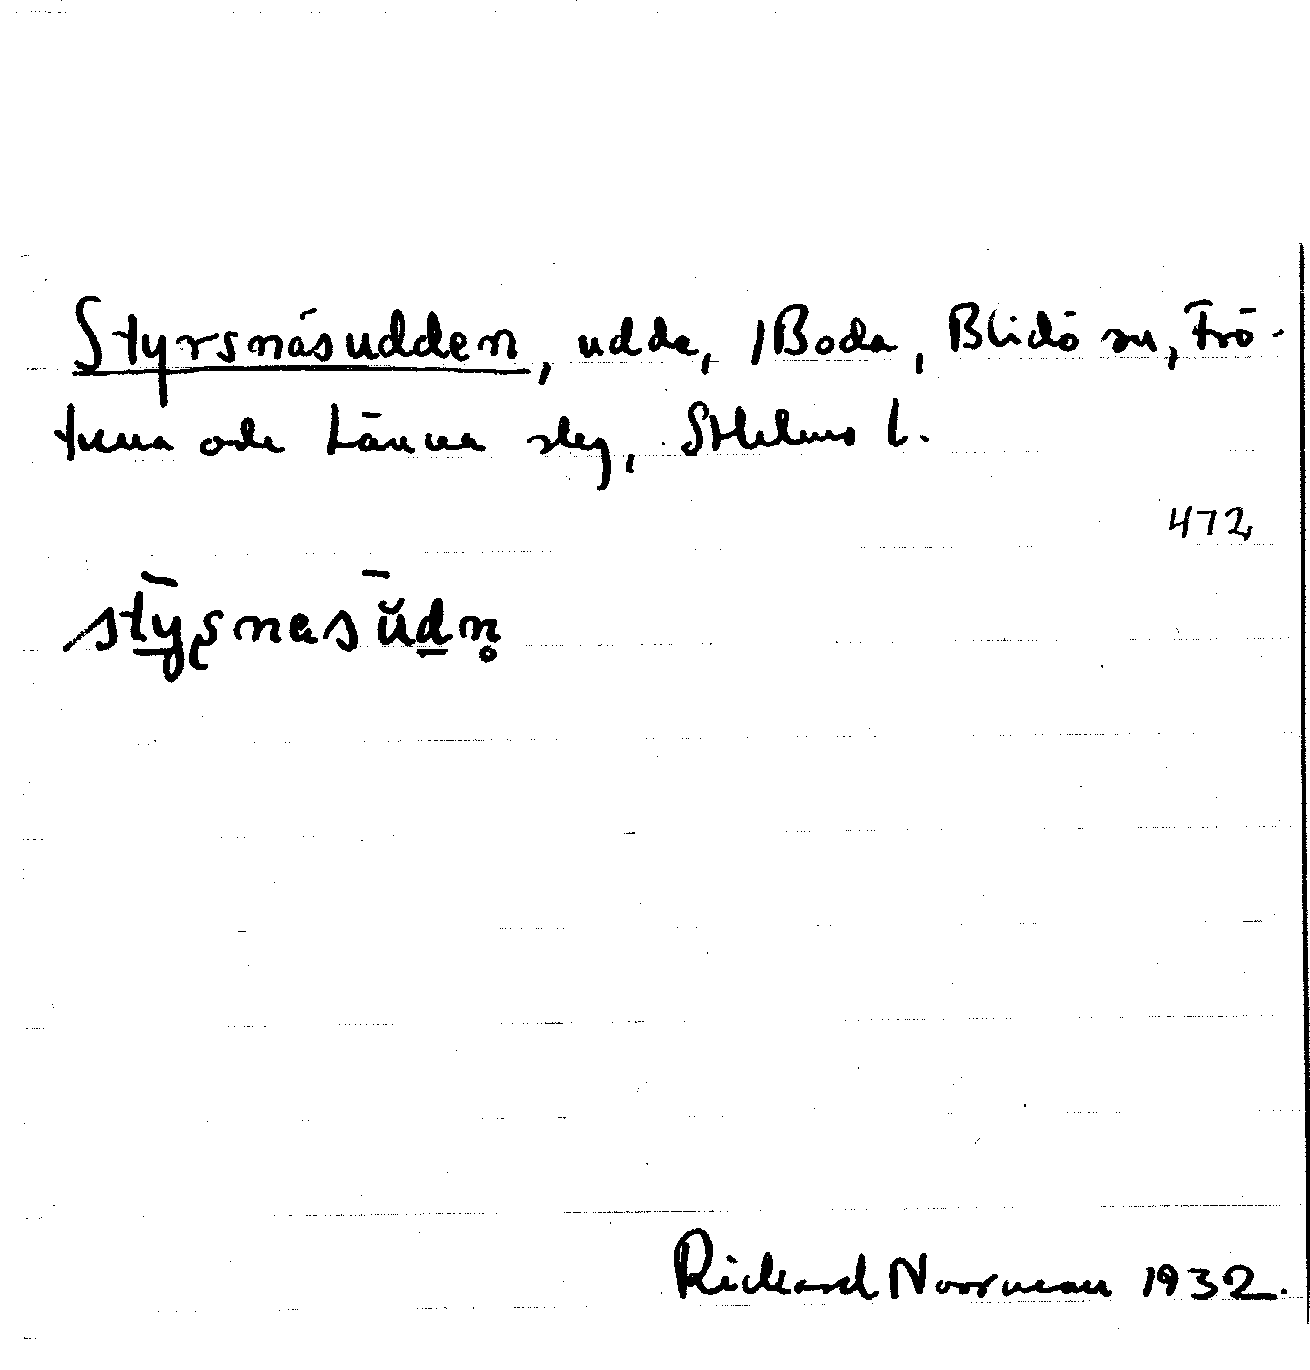 Styrsnäsudden, udde, /Boda, Blidö sn, Frö-
tuna och Länna slg, Sthlms l.
472
stȳʂnasŭdn̥
Rickard Noorman 1932.